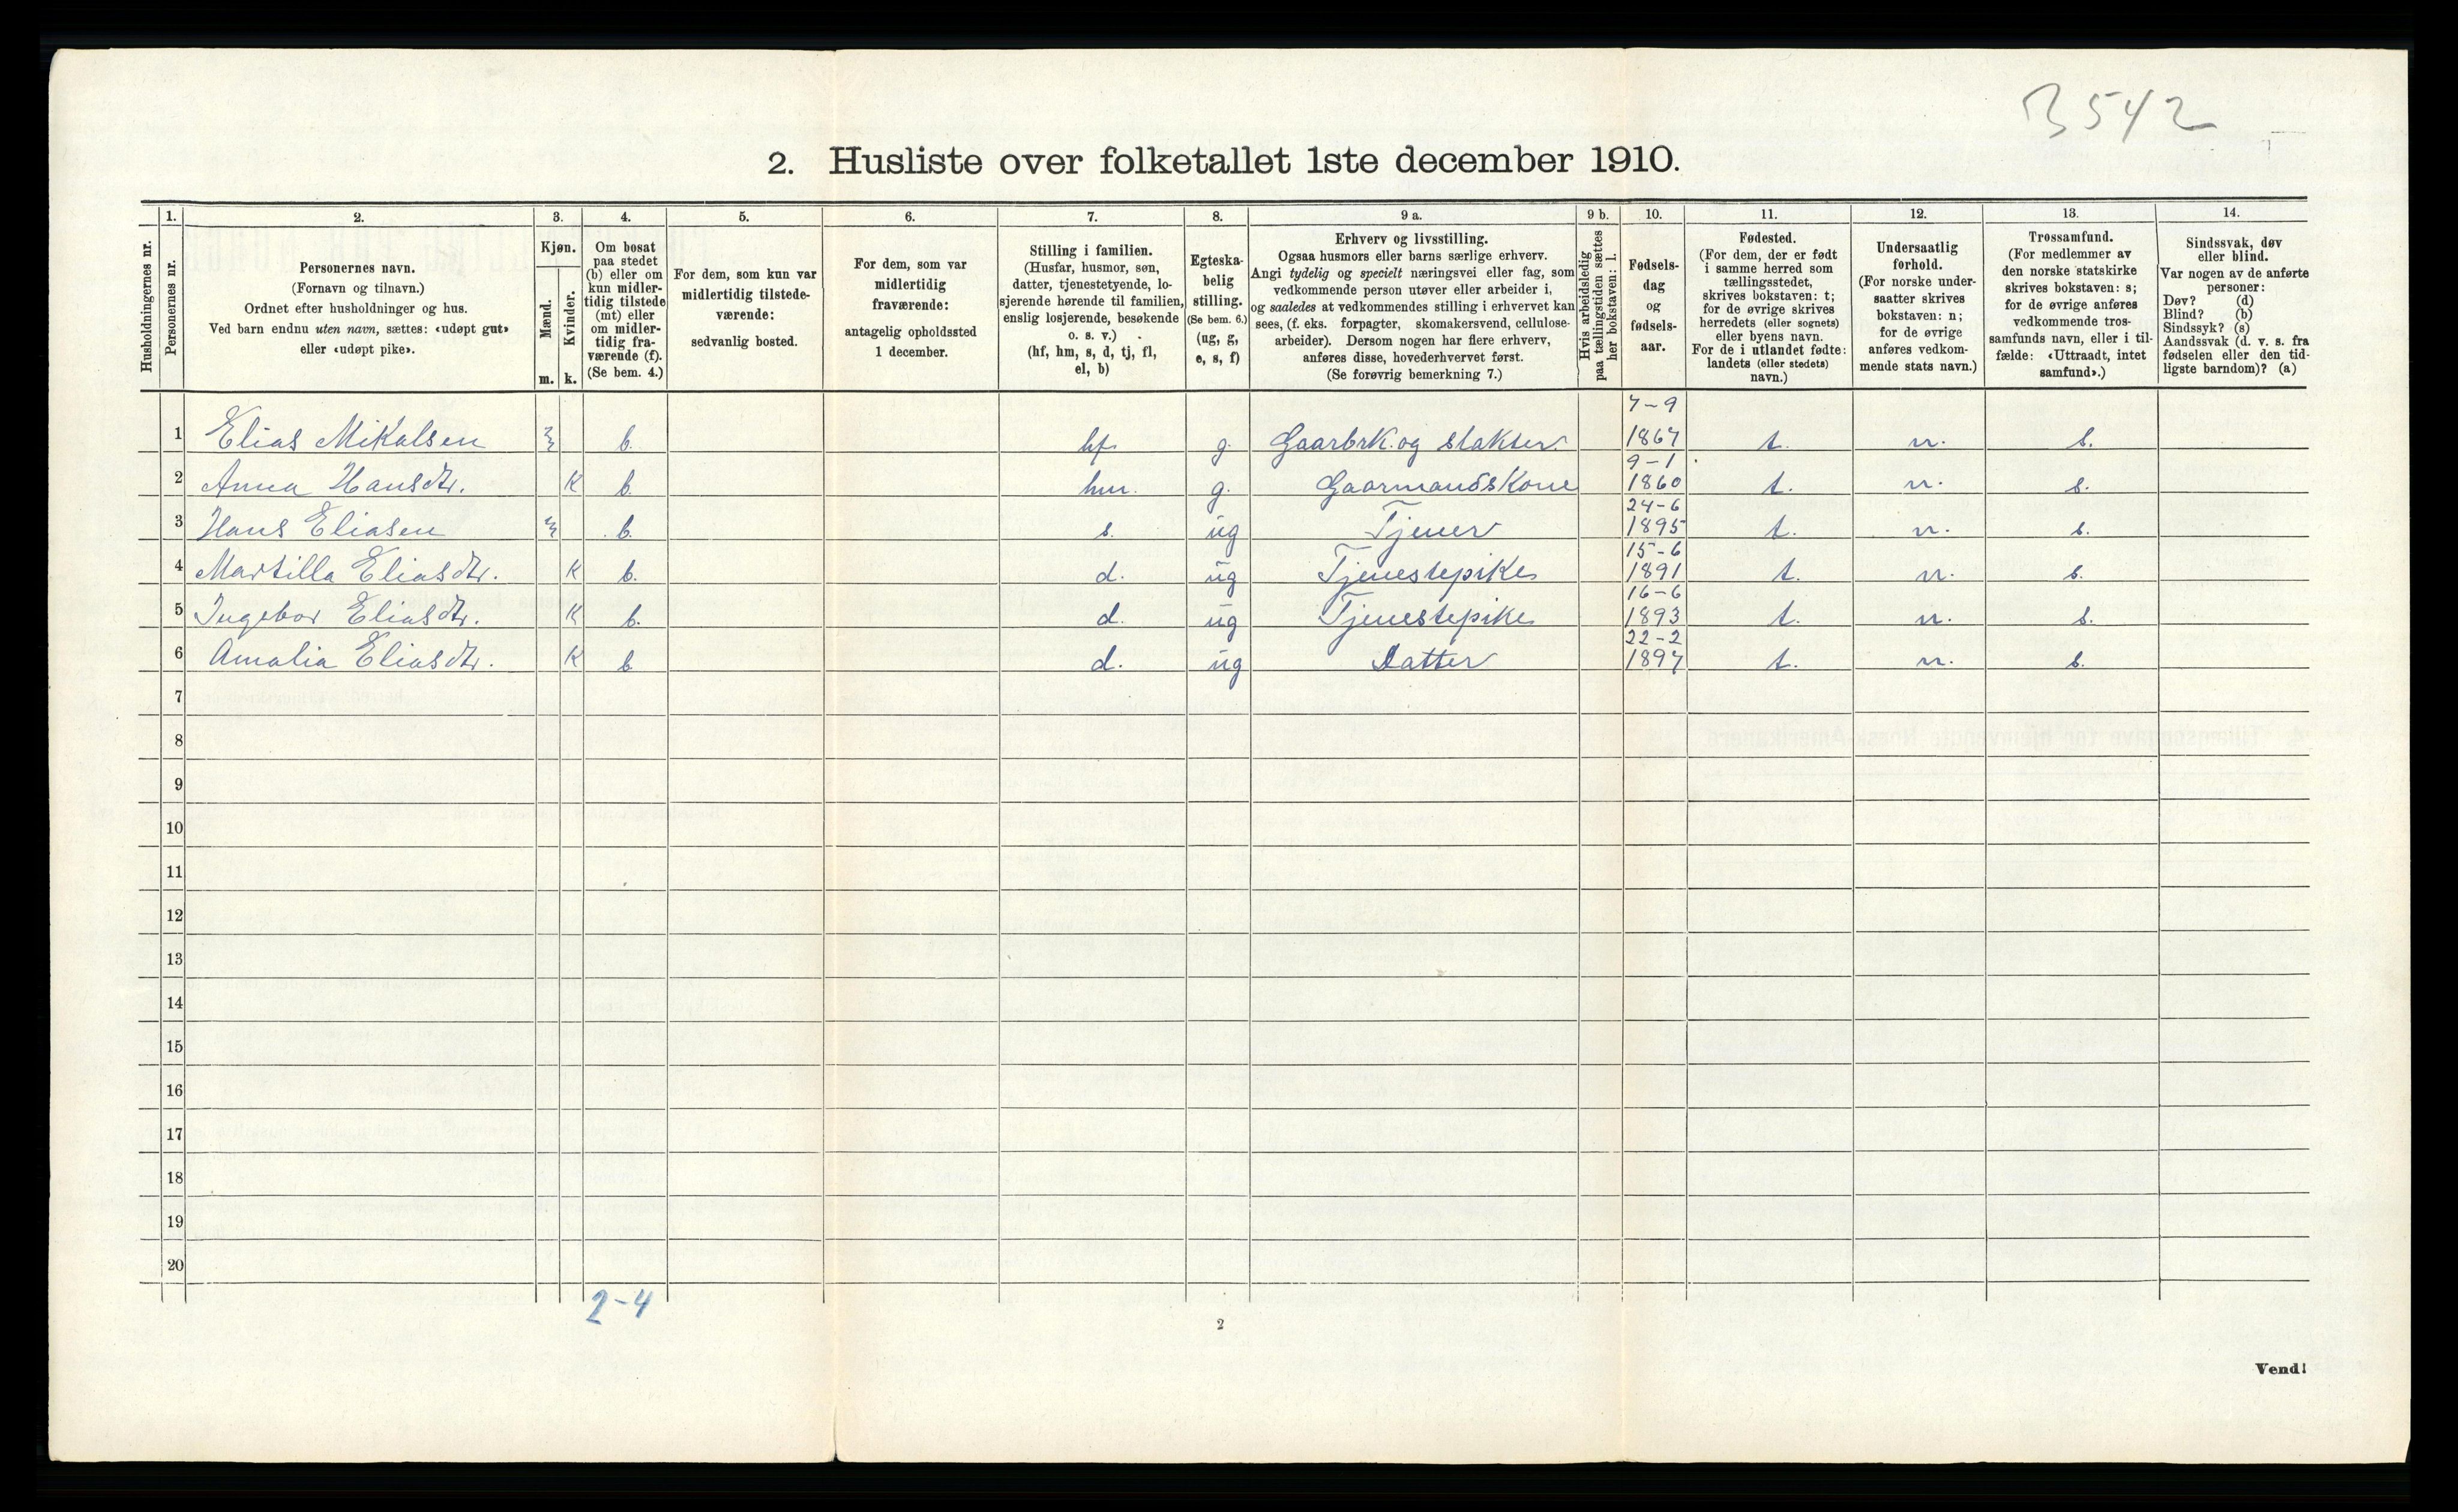 3542
2. Husliste over folketallet 1ste december 1910.
Husholdningernes nr.
1.
Personernes nr.
2.
Personernes navn.
(Fornavn og tilnavn.)
Ordnet efter husholdninger og hus.
Ved barn endnu uten navn, sættes: «udøpt gut»
eller «udøpt pike».
3.
Kjøn.
Mænd.
m.
Kvinder.
k.
4.
Om bosat
paa stedet
(b) eller om
kun midler-
tidig tilstede
(mt) eller
om midler-
tidig fra-
værende (f).
(Se bem. 4.)
5.
For dem, som kun var
midlertidig tilstede-
værende:
sedvanlig bosted.
6.
For dem, som var
midlertidig
fraværende:
antagelig opholdssted
1 december.
7.
Stilling i familien.
(Husfar, husmor, søn,
datter, tjenestetyende, lo-
sjerende hørende til familien,
enslig losjerende, besøkende
o. s. v.)
(hf, hm, s, d, tj, fl,
el, b)
8.
Egteska-
belig
stilling.
(Se bem. 6.)
(ug, g,
e, s, f)
9 a.
Erhverv og livsstilling.
Ogsaa husmors eller barns særlige erhverv.
Angi tydelig og specielt næringsvei eller fag, som
vedkommende person utøver eller arbeider i,
og saaledes at vedkommendes stilling i erhvervet kan
sees, (f. eks. forpagter, skomakersvend, cellulose-
arbeider). Dersom nogen har flere erhverv,
anføres disse, hovederhvervet først.
(Se forøvrig bemerkning 7.)
9 b.
Hvis arbeidsledig
paa tællingstiden sættes
her bokstaven: l.
10.
Fødsels-
dag
og
fødsels-
aar.
11.
Fødested.
(For dem, der er født
i samme herred som
tællingsstedet,
skrives bokstaven: t;
for de øvrige skrives
herredets (eller sognets)
eller byens navn.
For de i utlandet fødte:
landets (eller stedets)
navn.)
12.
Undersaatlig
forhold.
(For norske under-
saatter skrives
bokstaven: n;
for de øvrige
anføres vedkom-
mende stats navn.)
13.
Trossamfund.
(For medlemmer av
den norske statskirke
skrives bokstaven: s;
for de øvrige anføres
vedkommende tros-
samfunds navn, eller i til-
fælde: «Uttraadt, intet
samfund».)
14.
Sindssvak, døv
eller blind.
Var nogen av de anførte
personer:
Døv? (d)
Blind? (b)
Sindssyk? (s)
Aandssvak (d. v. s. fra
fødselen eller den tid-
ligste barndom)? (a)
1 Elias Mikalsen m b. hf. g. Gaarbrk. og slakter. 7-9 1867 t. n. s.
2 Anna Hansdtr. K b. hm. g. Gaarmandskone 9-1 1860 t. n. s.
3 Hans Eliasen m b. s. ug Tjener 24-6 1895 t. n. s.
4 Martilla Eliasdtr. K b. d. ug Tjenestepike 15-6 1891 t. n. s.
5 Ingebor Eliasdtr. K b. d. ug Tjenestepike 16-6 1893 t. n. s.
6 Amalia Eliasdtr. K b. d. ug Datter 22-2 1897 t. n. s.
7
8
9
10
11
12
13
14
15
16
17
18
19
20
2-4
2
Vend!